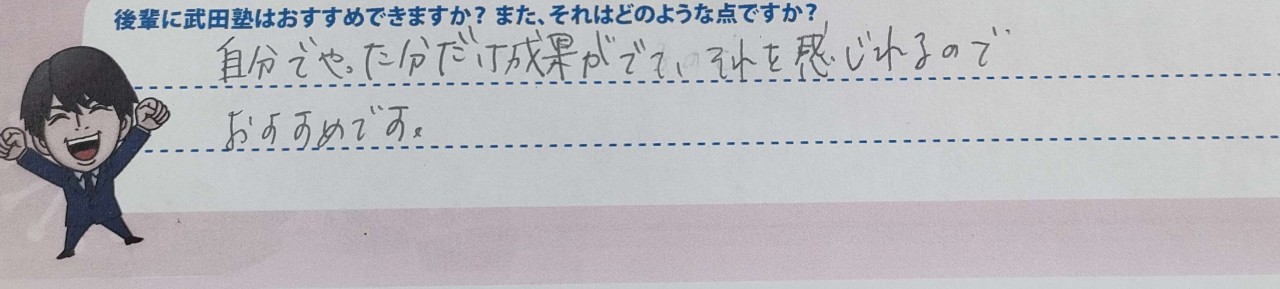 後輩に武田塾はおすすめできますか？また、それはどのような点ですか？
自分でやった分だけ成果がでて、それを感じれるので
おすすめです。